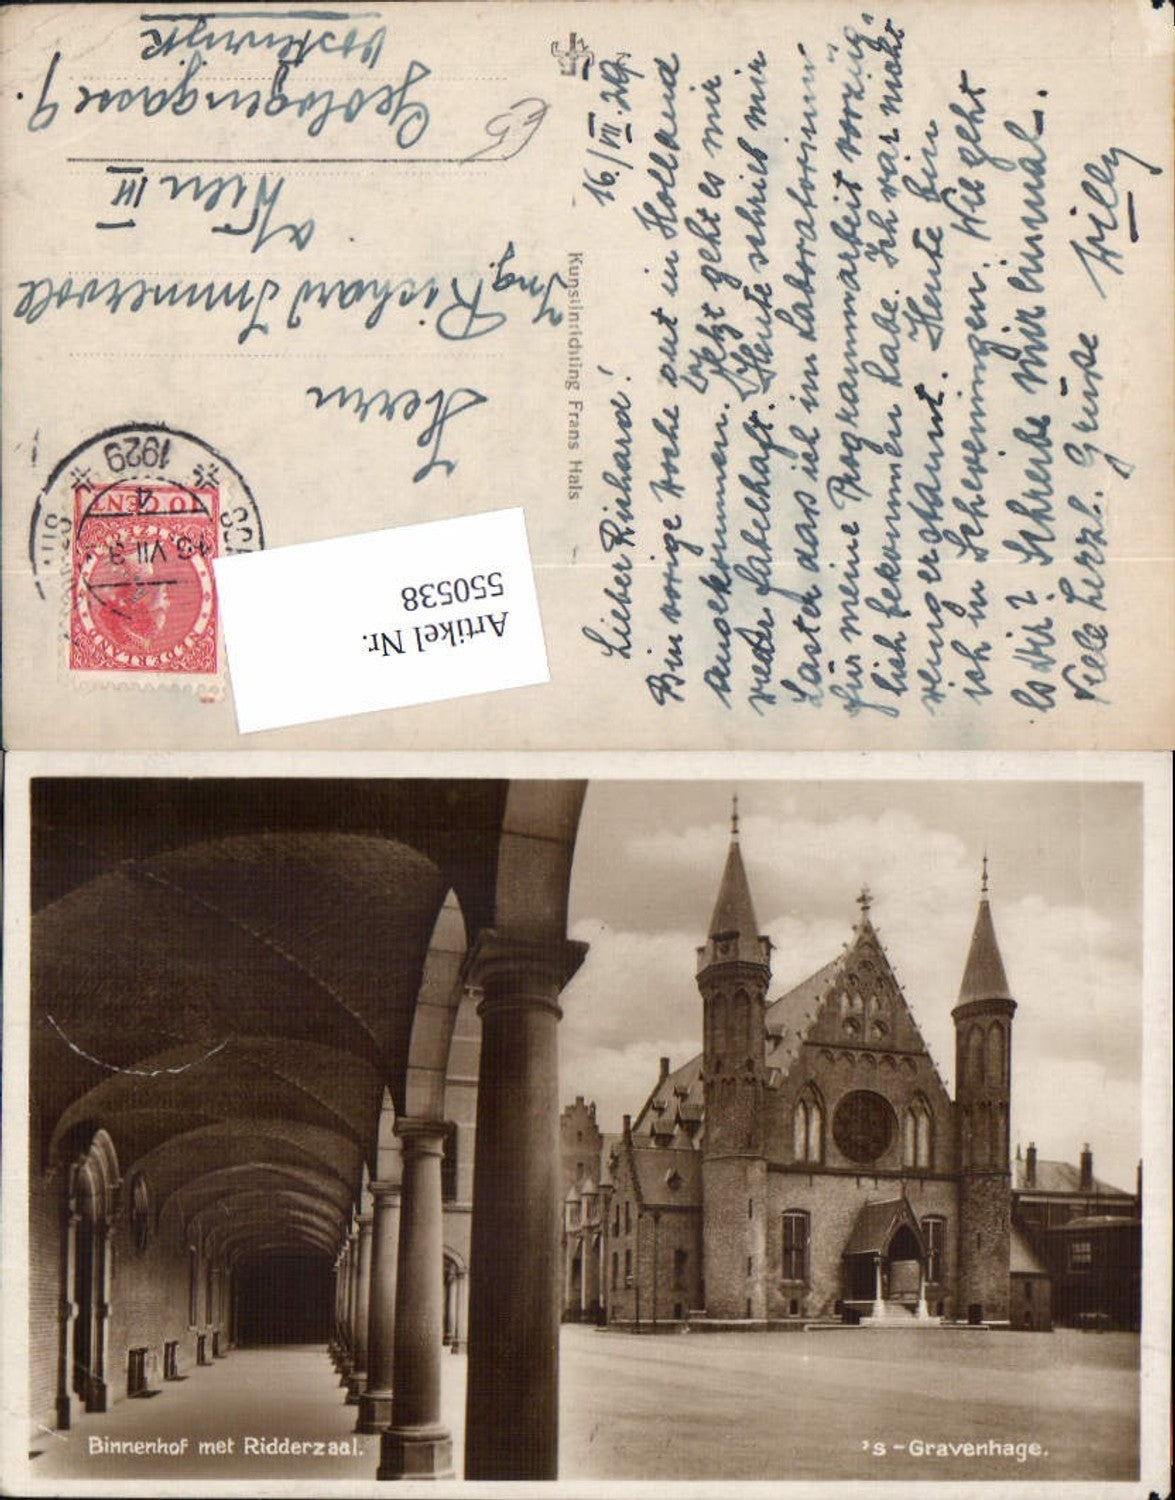 16./VII. 29.
Lieber Richard!
Bin vorige Woche gut in Holland
angekommen. Jetzt geht es mir
wieder fabelhaft. Heute schrieb mir
das ich im Laboratorium
für meine Programmarbeit vorzüg-
lich bekommen habe. Ich war nicht
wenig erstaunt. Heute bin
ich in Scheveningen. Wie geht
es Dir? Schreibe mir einmal.
Viele herzl. Grüße
Willy
Kunstinrichting Frans Hals
Herrn
Ing. Richard Immervoll
Wien III
Geologengasse 9.
Oostenrijk
£5
NEDERLAND
10 CENT
16 VII
4
1929
Artikel Nr.
550538
Binnenhof met Ridderzaal.
's-Gravenhage.